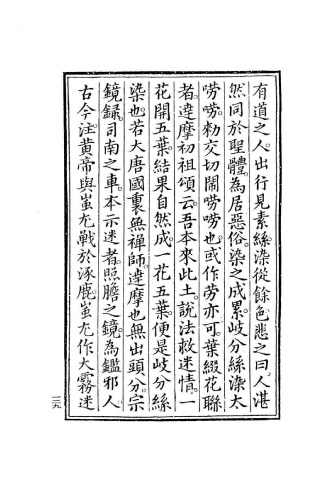 有道之人。出行見素絲染從餘色。悲之曰。人湛
然同於聖體。為居惡俗。染之成累。岐分絲染太
嘮嘮。勑交切鬧嘮嘮也。或作勞亦可。葉綴花聯
者。達摩初祖頌云。吾本來此土。說法救迷情。一
花開五葉。結果自然成。一花五葉便是岐分絲
染也。若大唐國裏無禪師。達摩也無出頭分。宗
鏡錄。司南之車。本示迷者。照膽之鏡。為鑑邪人。
古今注。黄帝與蚩尤戰於涿鹿。蚩尤作大霧迷
三九